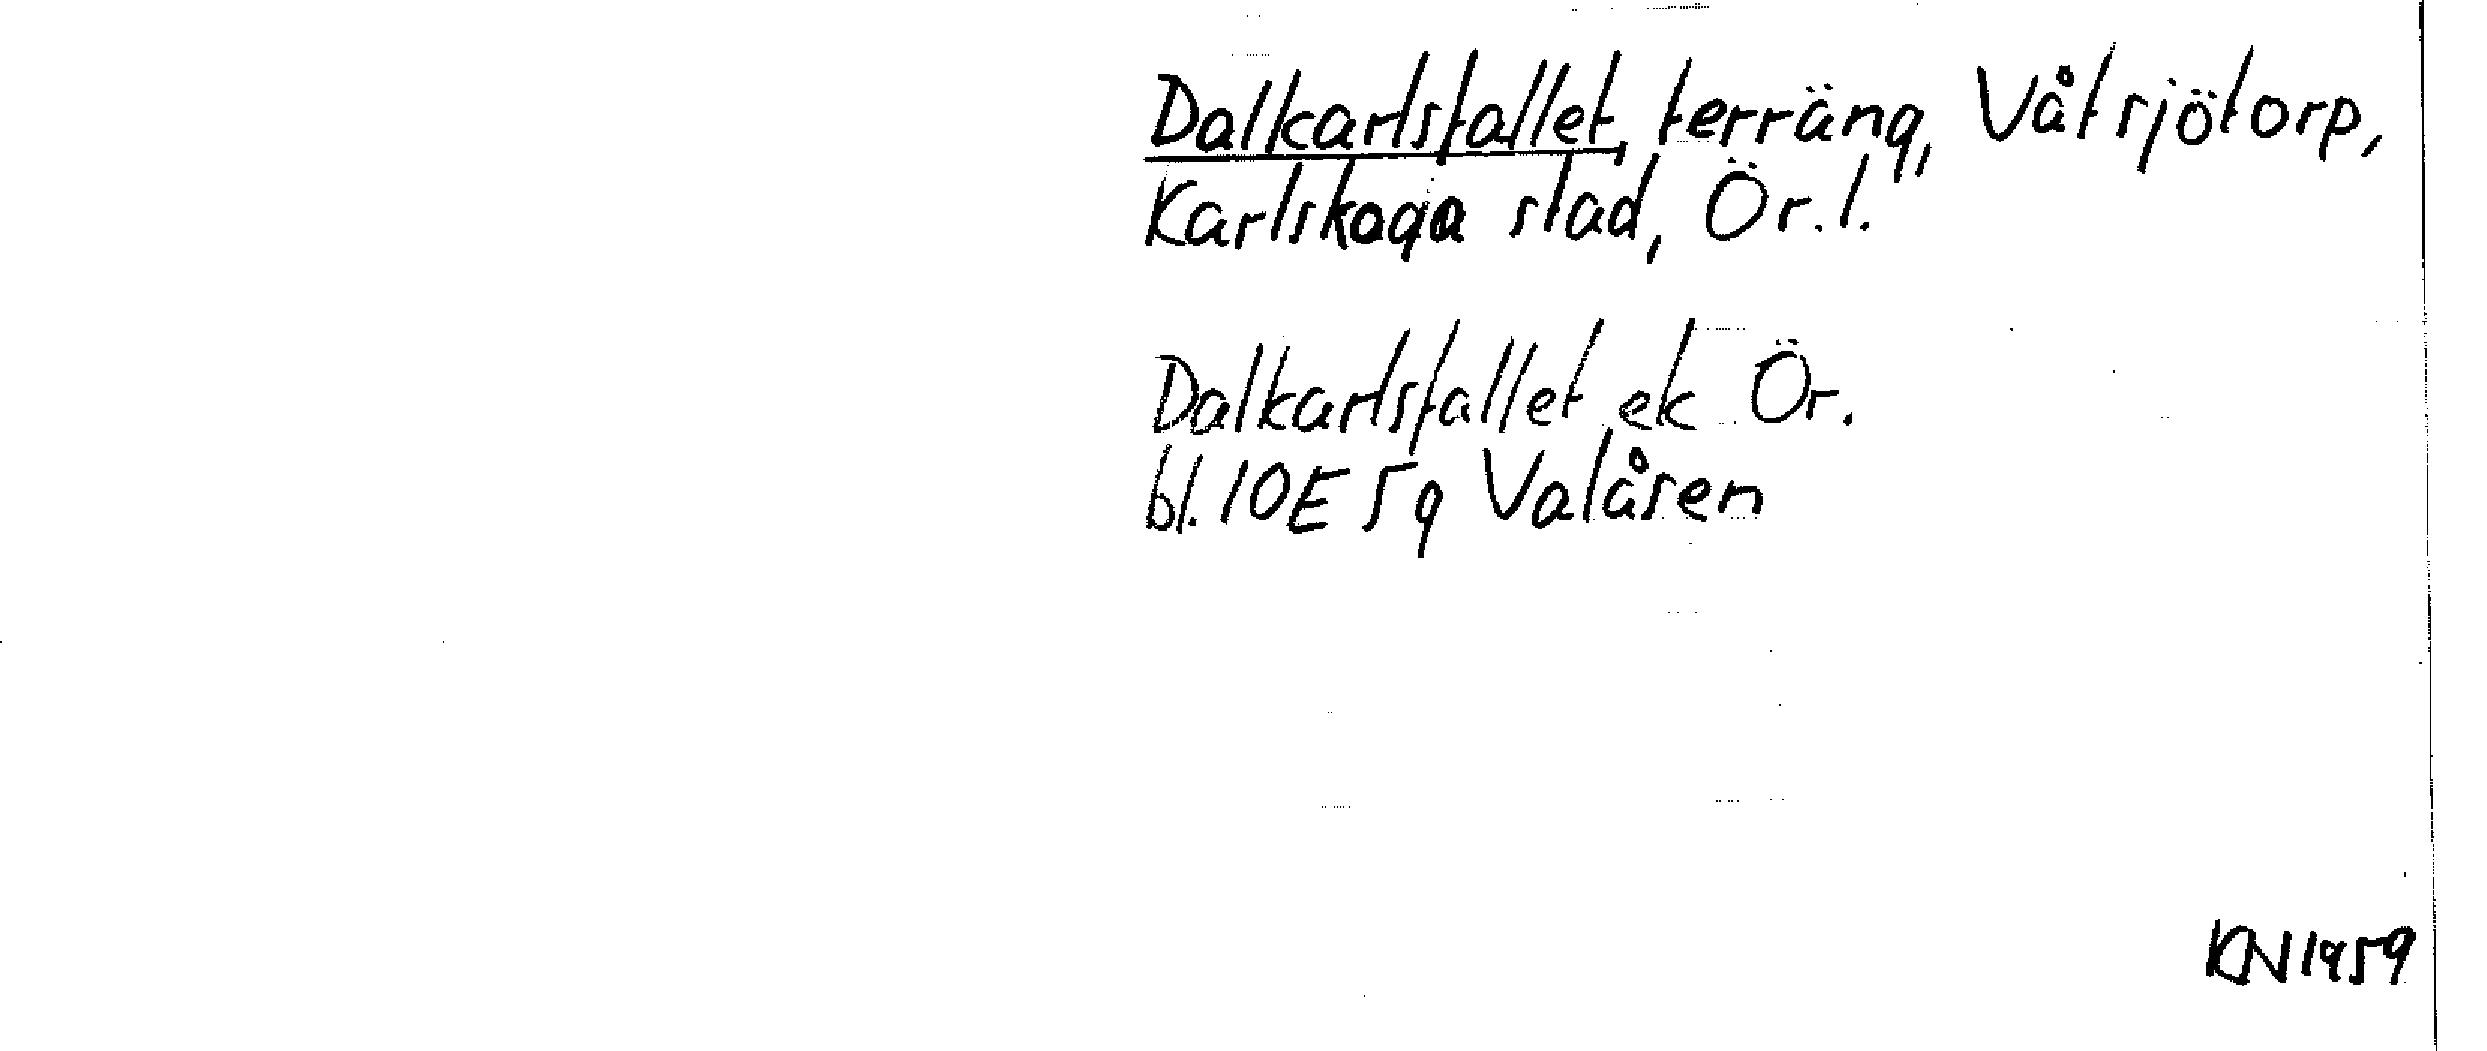 Dalkarlsfallet, terräng, Våtsjötorp,
Karlskoga stad, Ör.l.
Dalkarlsfallet ek Ör.
bl. 10E 5g Valåsen
KN1959